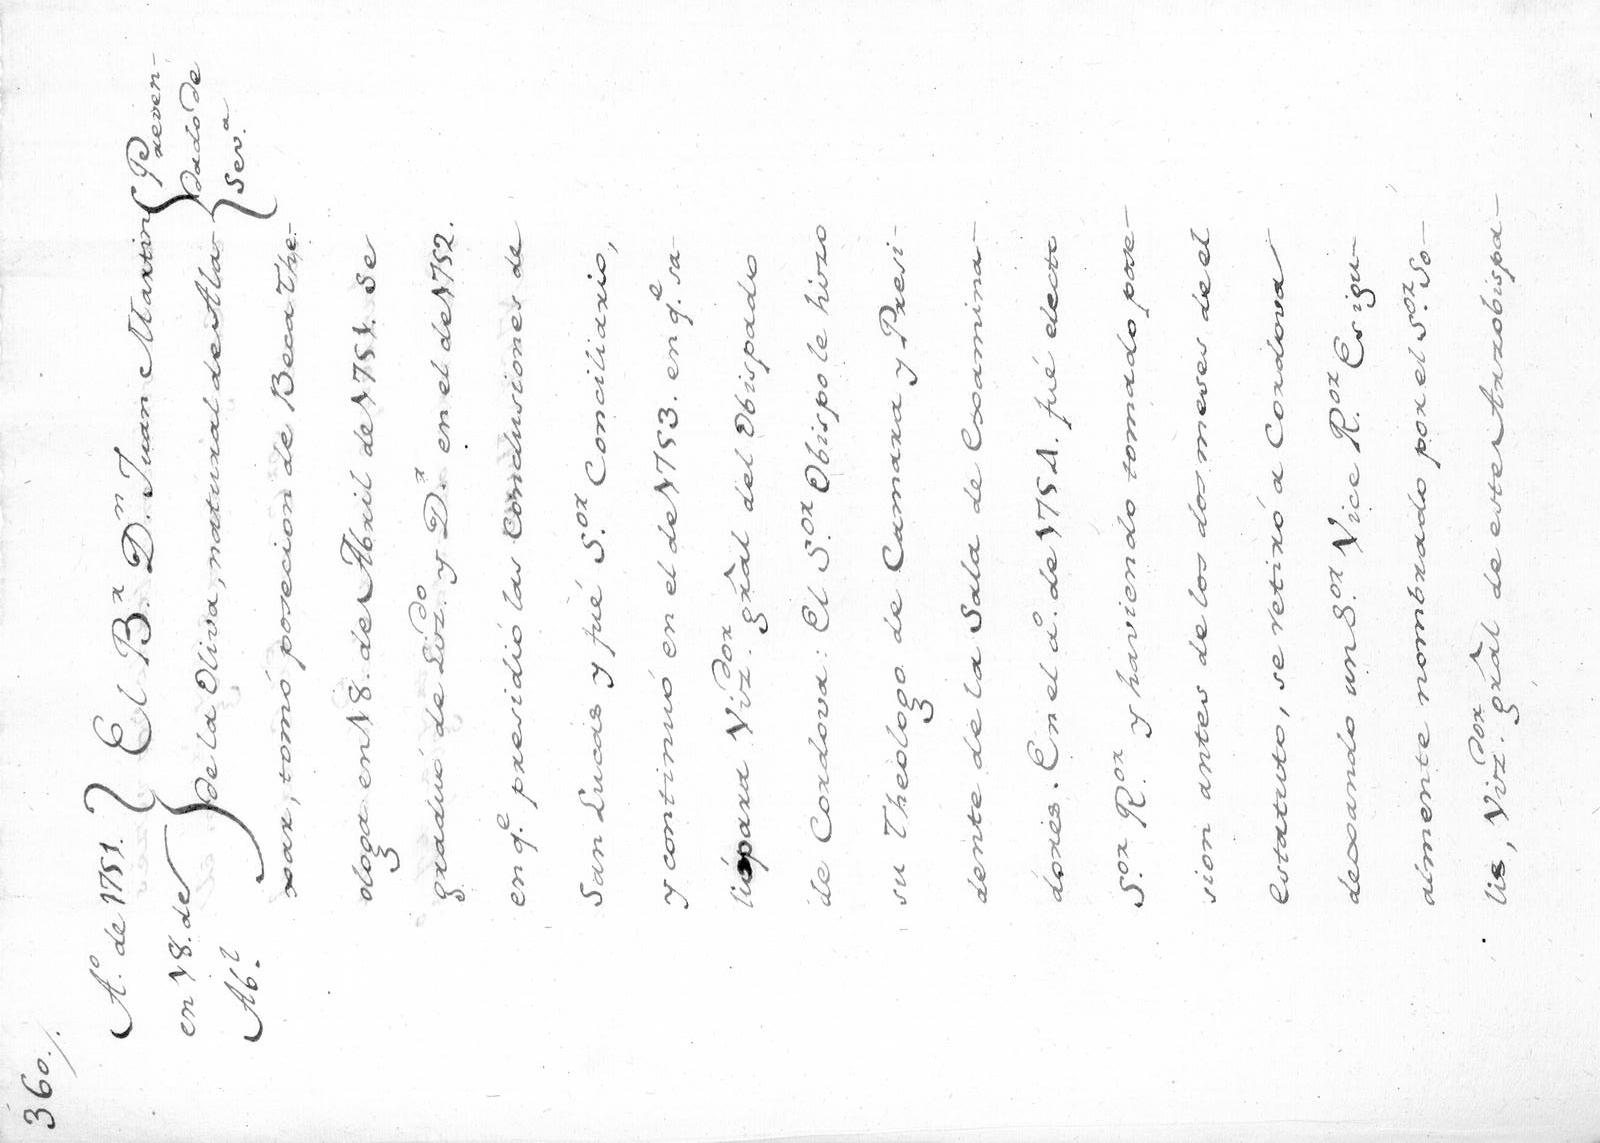 360./.
A.º de 1751.
en 18. de
Ab.l
El B.r D.n Juan Martin
de la Oliva, natural de Ala-
Preven-
dado de
Sev.a
xar, tomó posecion de Beca The-
ologa en 18. de Abril de 1751. Se
graduó de Liz.do y D.r en el de 1752.
en q.e presidió las Conclusiones de
San Lucas y fué S.or Conciliario,
y continuó en el de 1753. en q.e sa-
lió para Viz.dor grâl del Obispado
de Cordova: El S.or Obispo le hizo
su Theologo de Camara y Presi-
dente de la Sala de Examina-
dores. En el d.e de 1754. fué electo
S.or R.or y haviendo tomado pose-
sion antes de los dos meses de el
estatuto, se retiró a Cordova
dexando un S.or Vice R.or Es igu-
almente nombrado por el S.or So-
lis, Viz.dor grâl de este Arzobispa-